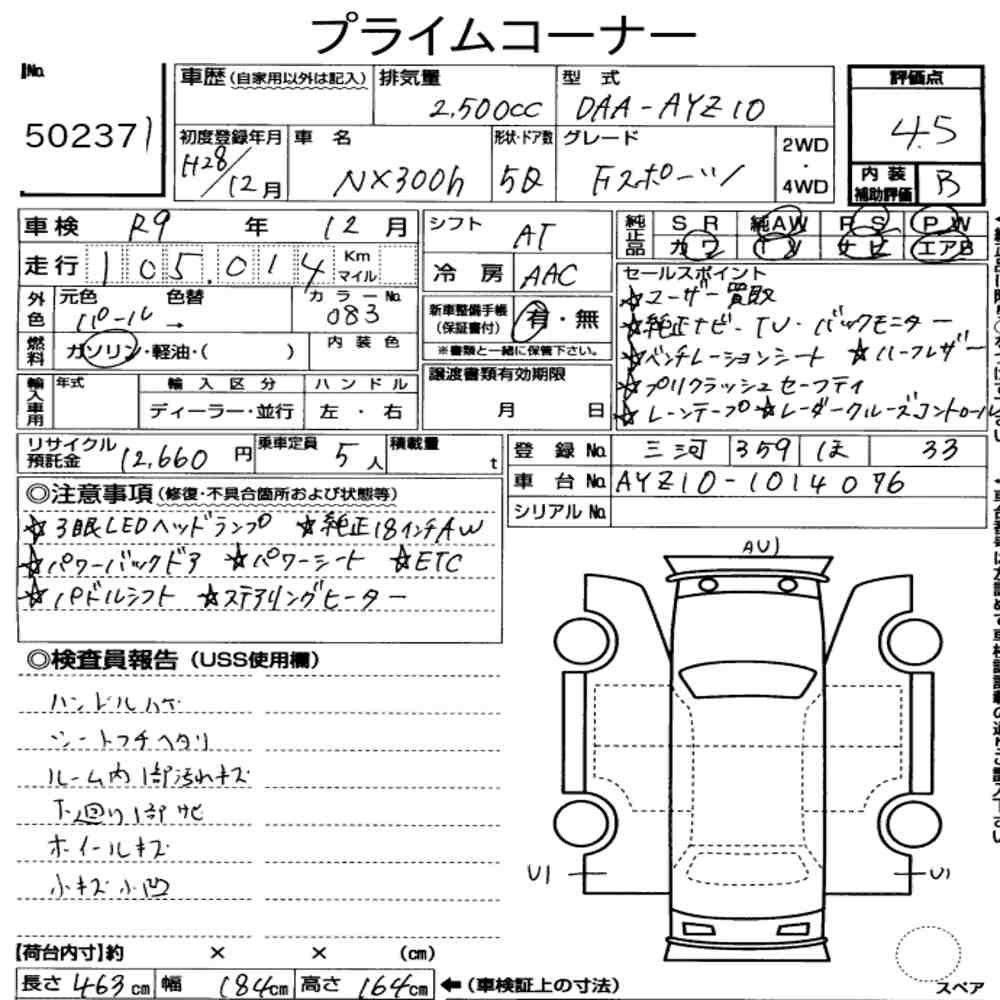 プライムコーナー
No.
50237
車歴 (自家用以外は記入) 排気量 型 式 評価点
2,500cc DAA-AYZ10
4.5
初度登録年月 車 名 形状・ドア数 グレード
H28/12月 NX300h 5D Fスポーツ
2WD・4WD
内装補助評価 B
車検 R9 年 12 月
走行 105,014 Km マイル
シフト AT
冷房 AAC
純正品 SR 純AW PS PW
カワ TV ナビ エアB
外色 元色 パール 色替 → カラーNo. 083
燃料 ガソリン・軽油・( ) 内装色
新車整備手帳(保証書付) 有・無
※書類と一緒に保管下さい。
輸入車用 年式 輸入区分 ハンドル
ディーラー・並行 左・右
譲渡書類有効期限
月 日
セールスポイント
☆ユーザー買取
☆純正ナビ-TV・バックモニター
☆ベンチレーションシート ☆ハーフレザー
☆プリクラッシュセーフティ
☆レーンデープ ☆レーダークルーズコントロール
リサイクル預託金 12,660 円 乗車定員 5人 積載量 t
登録No. 三河 359 ほ 33
車台No. AYZ10-1014076
シリアルNo.
◎注意事項(修復・不具合箇所および状態等)
☆3眼LEDヘッドランプ ☆純正18インチAW
☆パワーバックドア ☆パワーシート ☆ETC
☆パドルシフト ☆ステアリングヒーター
◎検査員報告 (USS使用欄)
ハンドルハゲ
シートフチヘタリ
ルーム内1部汚れキズ
下廻り1部サビ
ホイールキズ
小キズ小凹
AU1
U1
U1
【荷台内寸】約 × × (cm)
長さ 463cm 幅 184cm 高さ 164cm ←(車検証上の寸法)
スペア